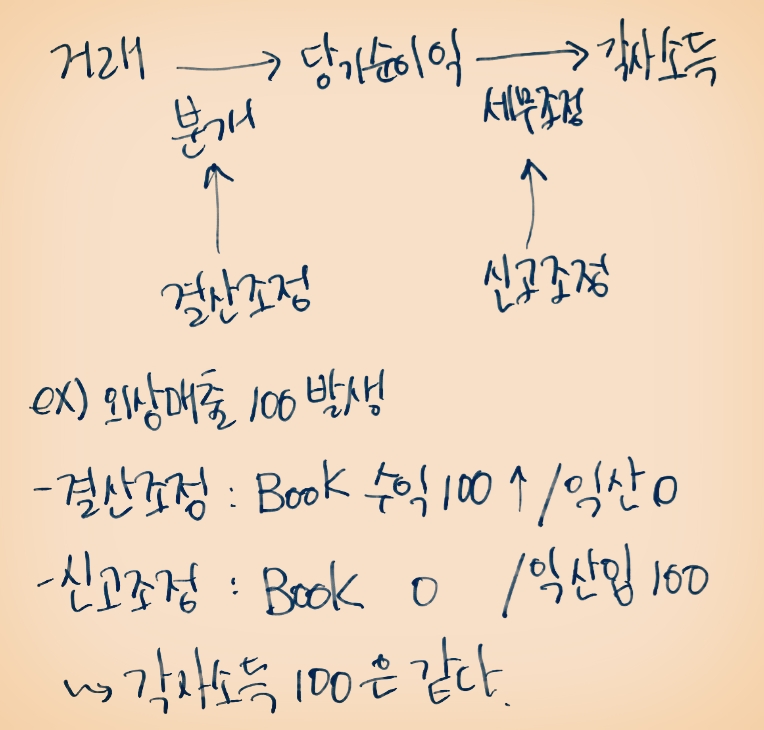 거래 → 당기순이익 → 각사소득
분개 세무조정
↑ ↑
결산조정 신고조정
ex) 외상매출 100 발생
-결산조정 : Book 수익 100 ↑ / 익산 0
-신고조정 : Book 0 / 익산입 100
↝ 각사소득 100은 같다.